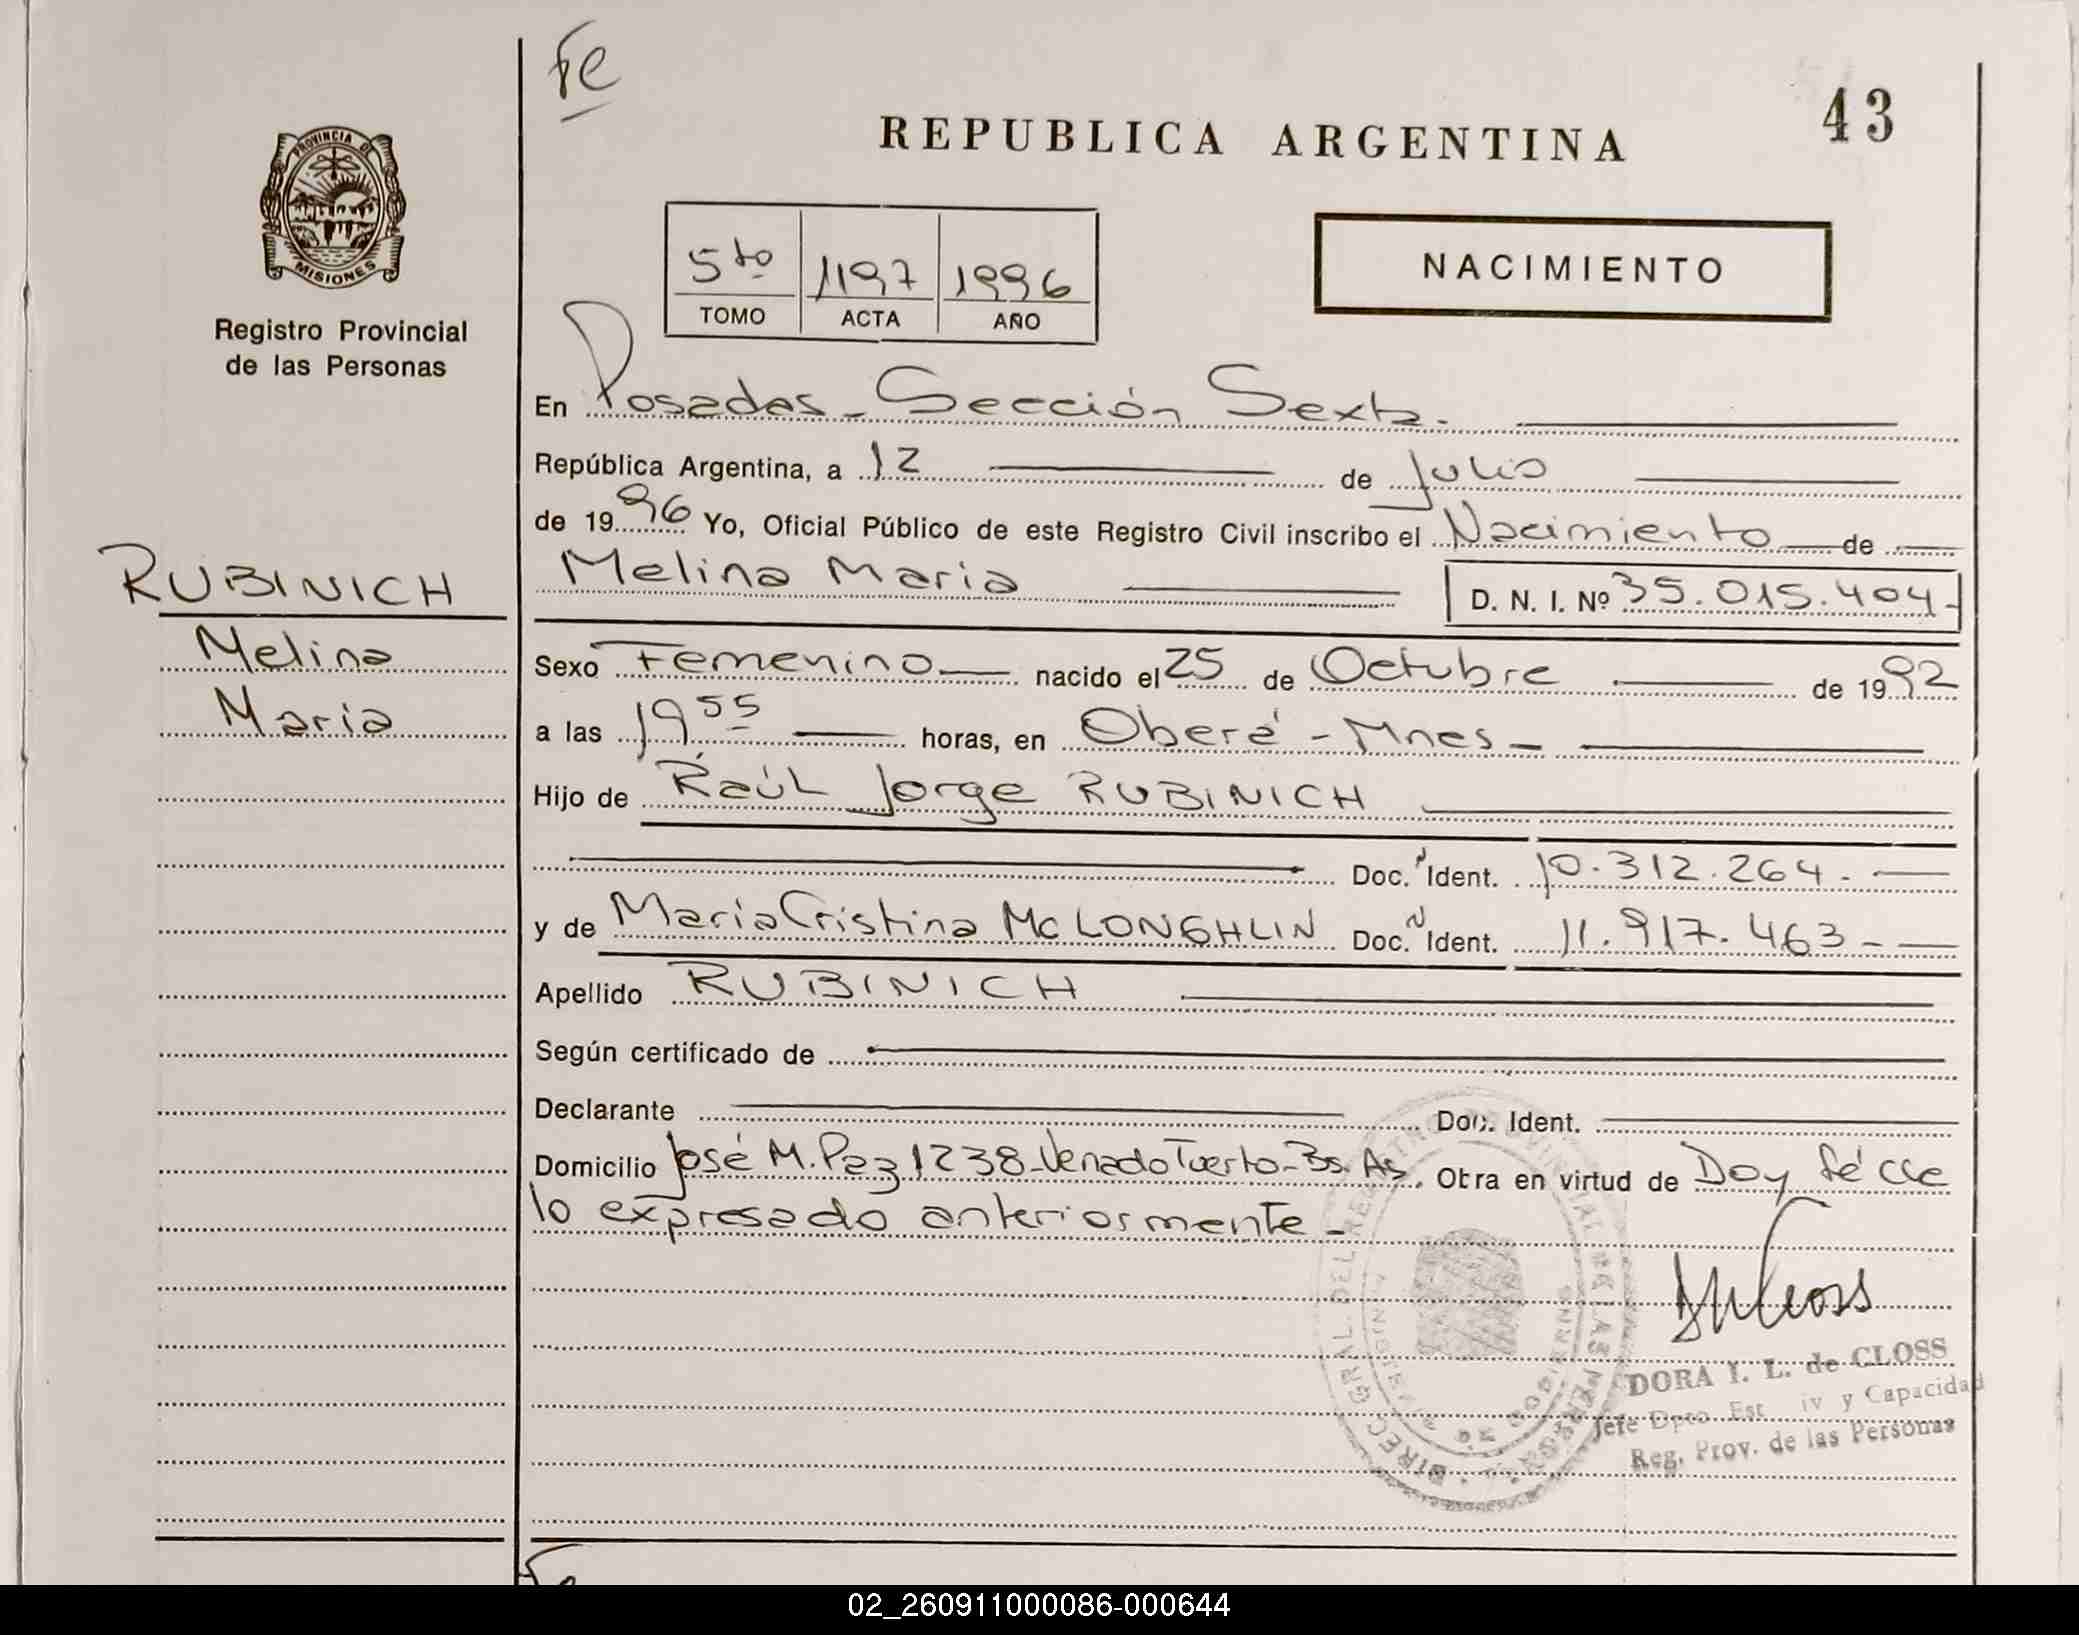 Fe
43
REPUBLICA ARGENTINA
PROVINCIA DE
MISIONES
Registro Provincial
de las Personas
5to 1197 1996
TOMO ACTA AÑO
NACIMIENTO
En Posadas - Sección Sexta.
República Argentina, a 12 de Julio
de 1996 Yo, Oficial Público de este Registro Civil inscribo el Nacimiento de
Melina Maria D. N. I. Nº 35.015.404-
RUBINICH
Melina
Maria
Sexo Femenino nacido el 25 de Octubre de 1992
a las 19 55 horas, en Oberá - Mnes -
Hijo de Raúl Jorge RUBINICH
Doc. Ident. 10.312.264.
y de Maria Cristina Mc LONGHLIN Doc. Ident. 11.917.463-
Apellido RUBINICH
Según certificado de
Declarante Doc. Ident.
Domicilio José M. Paz 1238-Venado Tuerto-Bs. As. Otra en virtud de Doy fé de
lo expresado anteriormente -
DORA I. L. de CLOSS
Jefe Dpto. Est iv y Capacidad
Reg. Prov. de las Personas
02_260911000086-000644